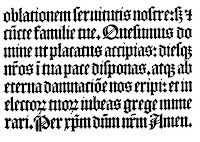 oblationem seruitutis nostre: sꝫ ⁊
cūcte familie tue, Quesumus do
mine ut placatus accipias: diesqꝫ
nr̄os ī tua pace disponas, atqꝫ ab
eterna damnacōne nos eripi: et in
electoꝝ tuoꝝ iubeas grege nume
rari. Per xp̄m dūm nr̄m Amen.